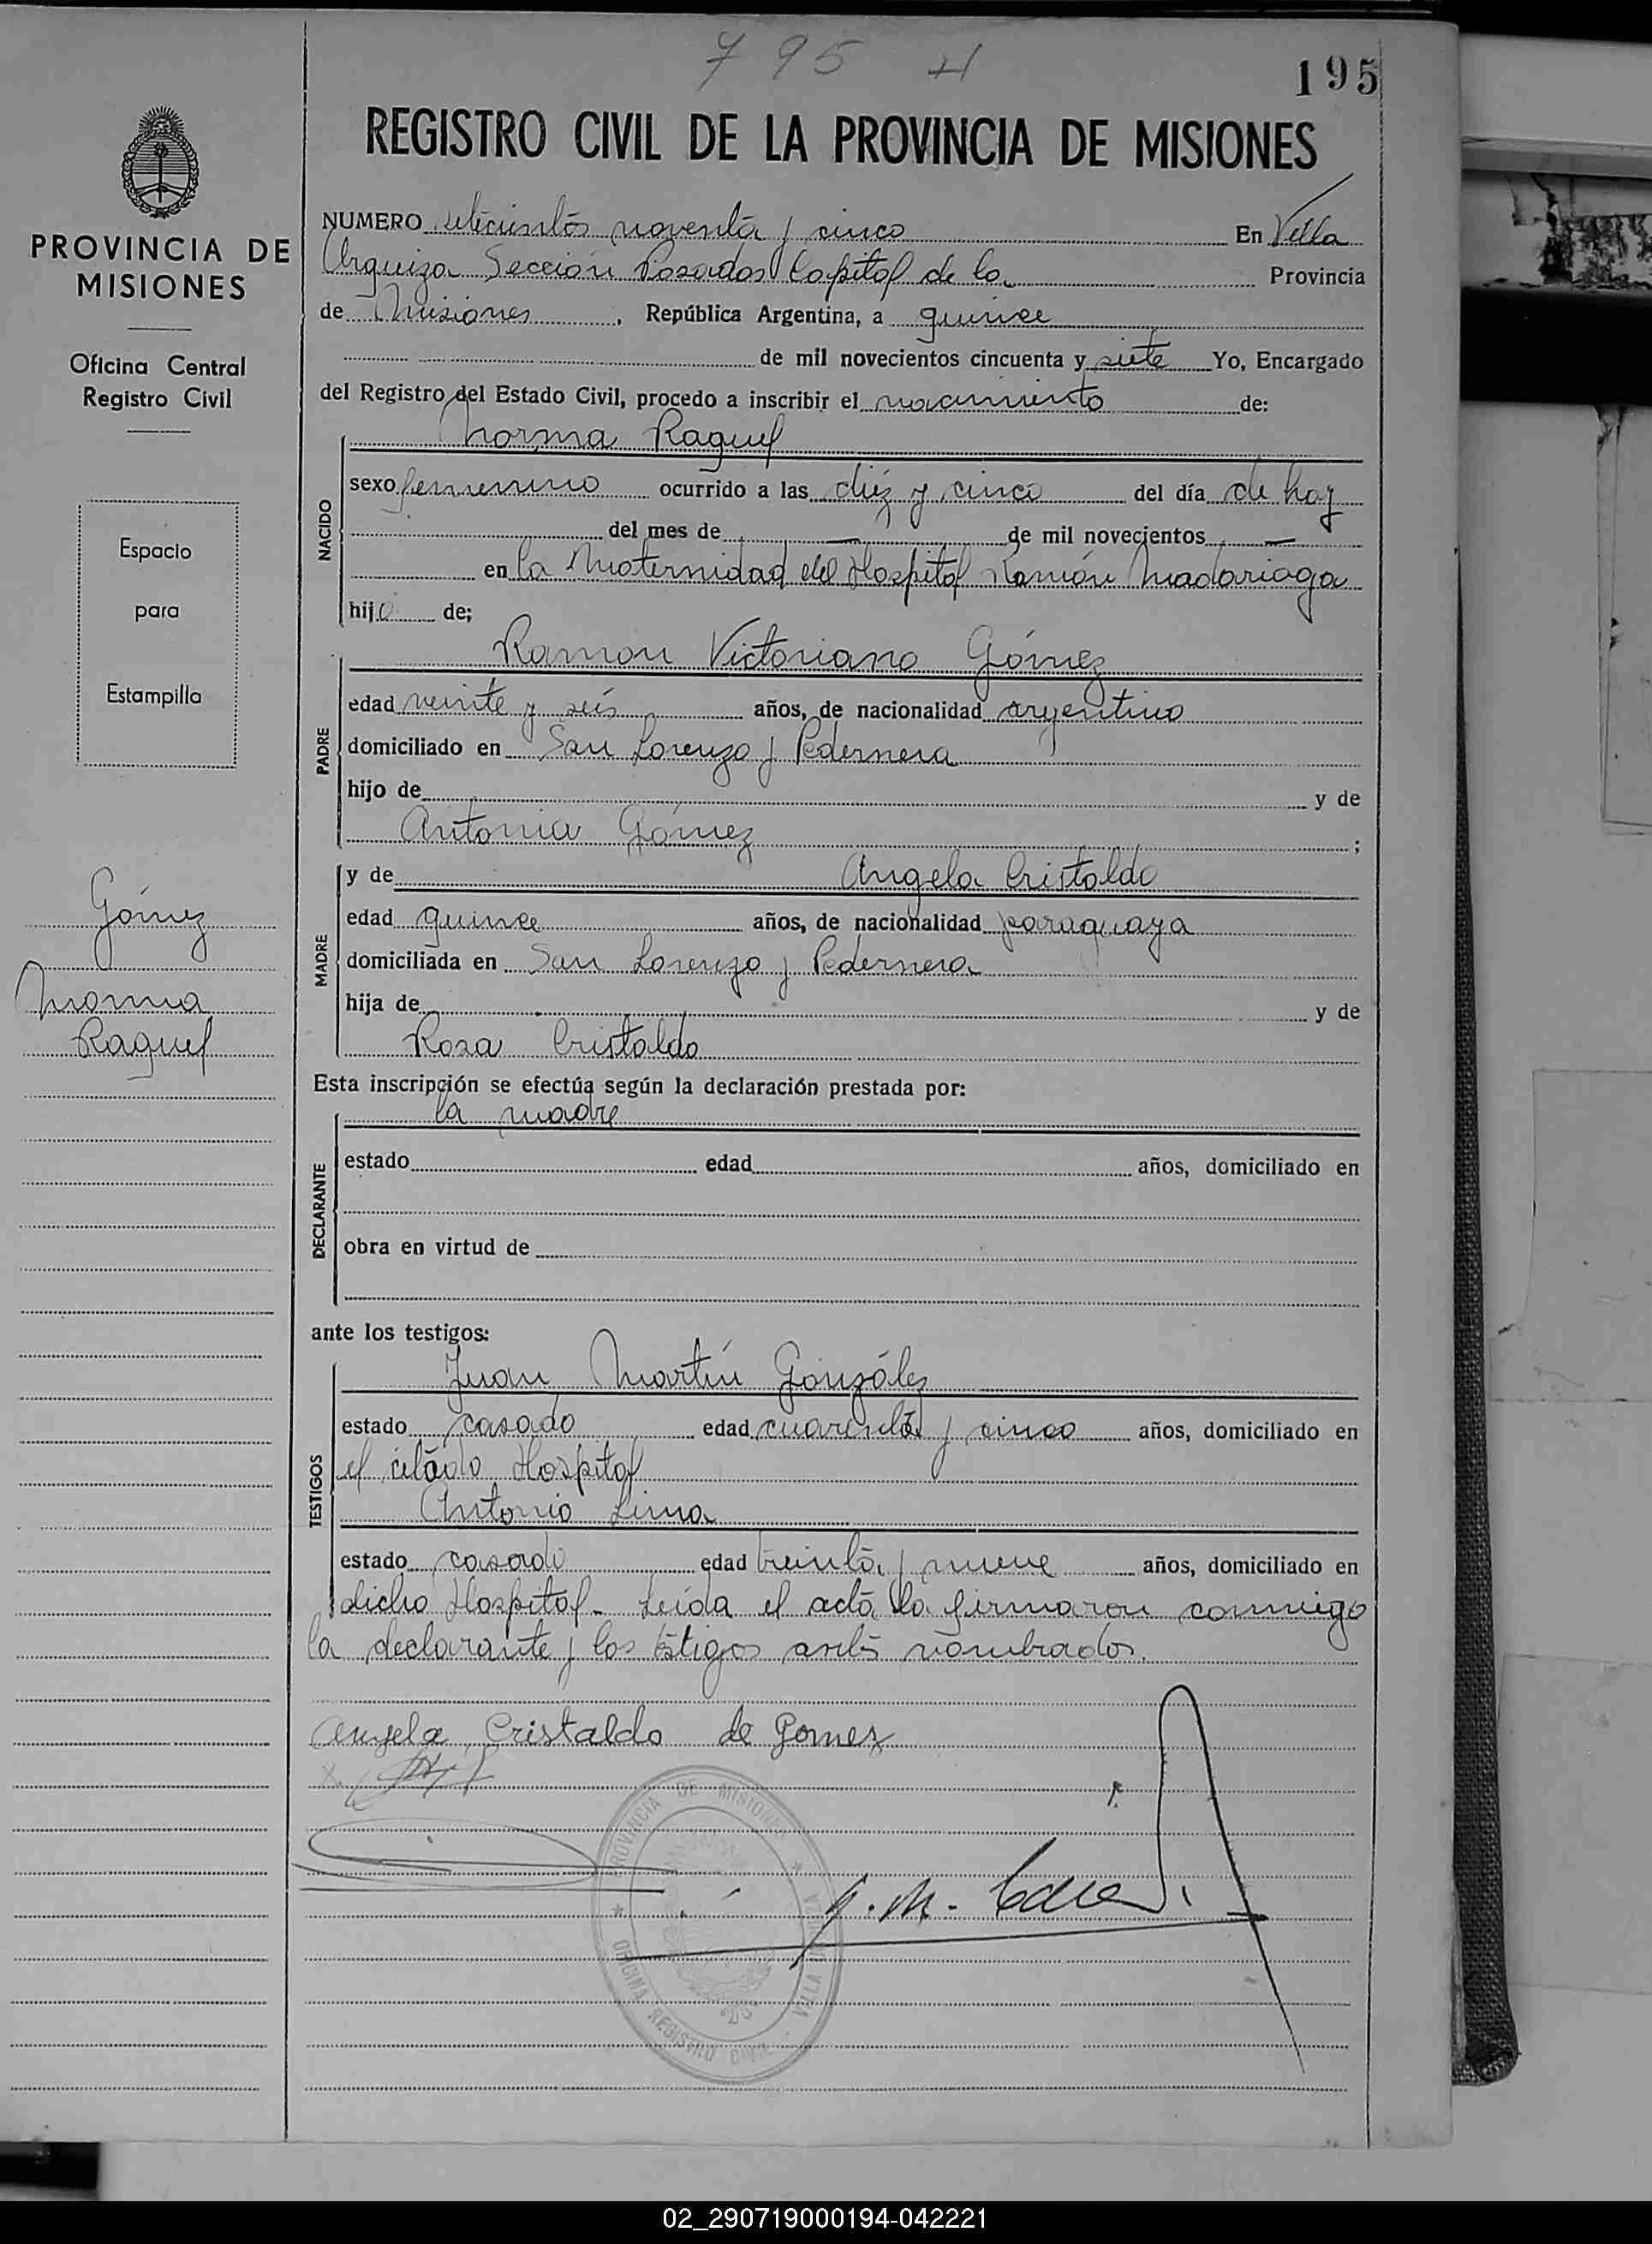 795
195
REGISTRO CIVIL DE LA PROVINCIA DE MISIONES
PROVINCIA DE
MISIONES
Oficina Central
Registro Civil
Espacio
para
Estampilla
Gómez
Norma
Raquel
NUMERO setecientos noventa y cinco En Villa
Urquiza Sección Posadas Capital de la Provincia
de Misiones, República Argentina, a quince
de mil novecientos cincuenta y siete Yo, Encargado
del Registro del Estado Civil, procedo a inscribir el nacimiento de:
NACIDO
Norma Raquel
sexo femenino ocurrido a las diéz y cinco del día de hoy
del mes de — de mil novecientos —
en la Maternidad del Hospital Ramón Madariaga
hija de;
PADRE
Ramon Victoriano Gómez
edad veinte y seis años, de nacionalidad argentino
domiciliado en San Lorenzo y Pedernera
hijo de y de
Antonia Gómez ;
MADRE
y de Angela Cristaldo
edad quince años, de nacionalidad paraguaya
domiciliada en San Lorenzo y Pedernera
hija de y de
Rosa Cristaldo
Esta inscripción se efectúa según la declaración prestada por:
DECLARANTE
la madre
estado edad años, domiciliado en
obra en virtud de
ante los testigos:
TESTIGOS
Juan Martín González
estado casado edad cuarenta y cinco años, domiciliado en
el citado Hospital
Antonio Lima
estado casado edad treinta y nueve años, domiciliado en
dicho Hospital - Leída el acta la firmaron conmigo
la declarante y los testigos antes nombrados.
Angela Cristaldo de Gomez
PROVINCIA DE MISIONES
OFICINA REGISTRO CIVIL
VILLA
02_290719000194-042221